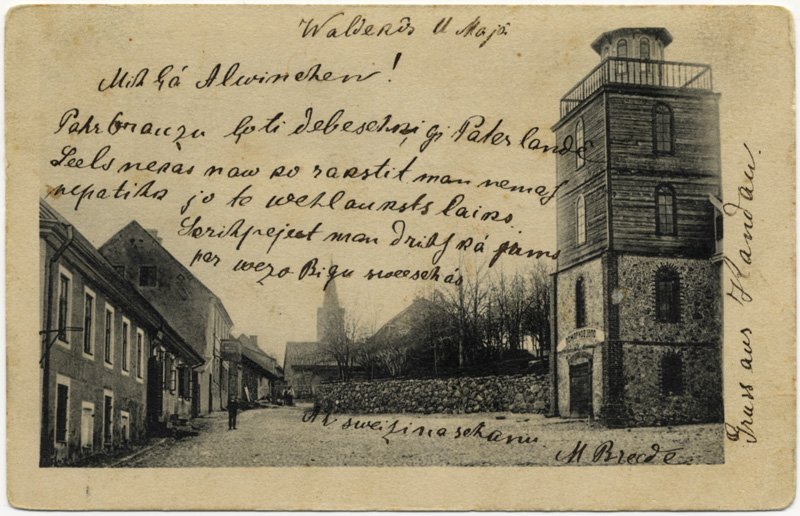 Walderkos 11 Majā
Mihļā Alwinchen!
Pahrbrauzu ļoti debeschķigi Paterlandē
Leels nekas naw ko rakstit man nemas
nepatihk jo te wehl auksts laiks.
Sarihkojeet man drihs kā jums
par wezo Rigu sweeschās
Ar sweizinaschanu
M Breede
Gruss aus Kandau.